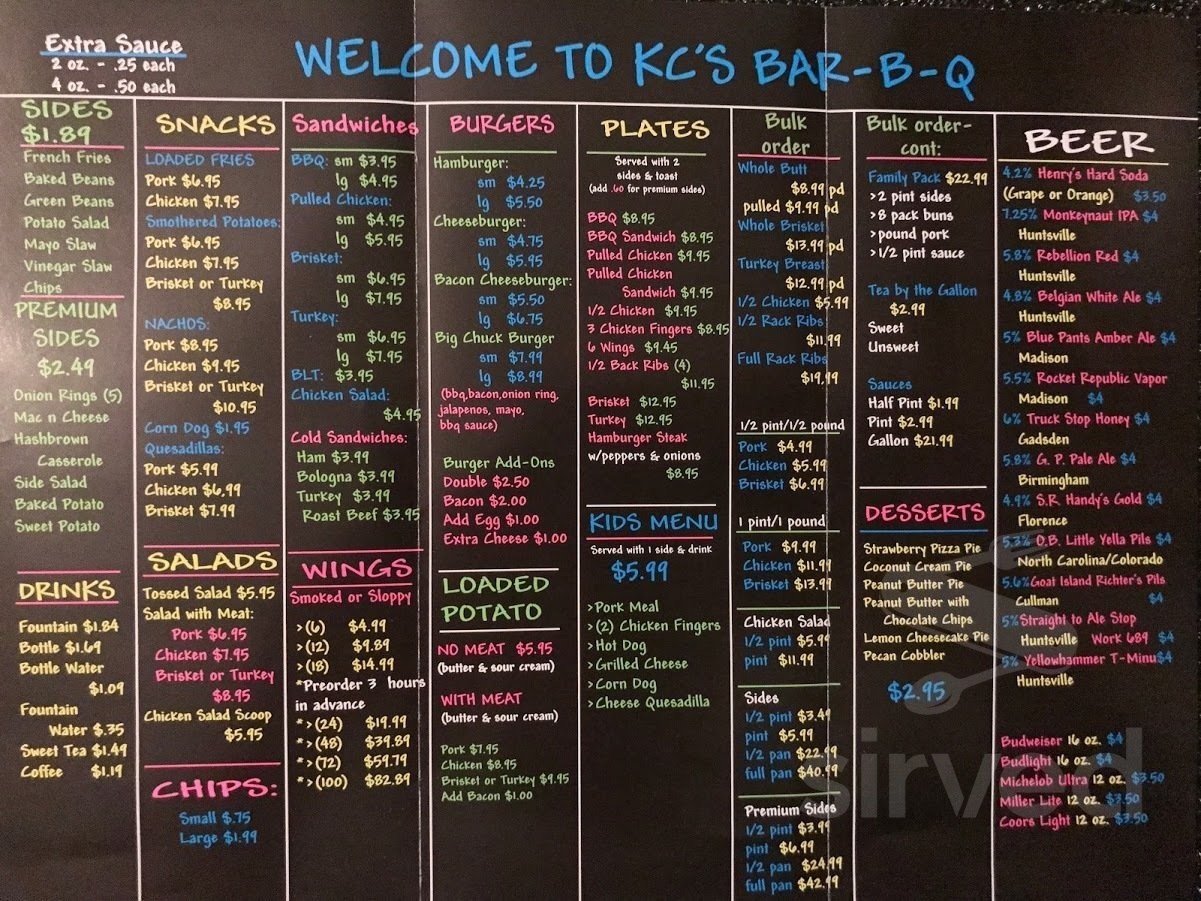 Extra Sauce
2 oz. - .25 each
4 oz. - .50 each
WELCOME TO KC'S BAR-B-Q
SIDES
$1.89
French Fries
Baked Beans
Green Beans
Potato Salad
Mayo Slaw
Vinegar Slaw
Chips
PREMIUM
SIDES
$2.49
Onion Rings (5)
Mac n Cheese
Hashbrown
Casserole
Side Salad
Baked Potato
Sweet Potato
DRINKS
Fountain $1.84
Bottle $1.69
Bottle Water
$1.09
Fountain
Water $.35
Sweet Tea $1.49
Coffee $1.19
SNACKS
LOADED FRIES
Pork $6.95
Chicken $7.95
Smothered Potatoes:
Pork $6.95
Chicken $7.95
Brisket or Turkey
$8.95
NACHOS:
Pork $8.95
Chicken $9.95
Brisket or Turkey
$10.95
Corn Dog $1.95
Quesadillas:
Pork $5.99
Chicken $6.99
Brisket $7.99
SALADS
Tossed Salad $5.95
Salad with Meat:
Pork $6.95
Chicken $7.95
Brisket or Turkey
$8.95
Chicken Salad Scoop
$5.95
CHIPS:
Small $.75
Large $1.99
Sandwiches
BBQ: sm $3.95
lg $4.95
Pulled Chicken:
sm $4.95
lg $5.95
Brisket:
sm $6.95
lg $7.95
Turkey:
sm $6.95
lg $7.95
BLT: $3.95
Chicken Salad:
$4.95
Cold Sandwiches:
Ham $3.99
Bologna $3.99
Turkey $3.99
Roast Beef $3.95
WINGS
Smoked or Sloppy
>(6) $4.99
>(12) $9.89
>(18) $14.99
*Preorder 3 hours
in advance
*>(24) $19.99
*>(48) $39.89
*>(72) $59.79
*>(100) $82.89
BURGERS
Hamburger:
sm $4.25
lg $5.50
Cheeseburger:
sm $4.75
lg $5.95
Bacon Cheeseburger:
sm $5.50
lg $6.75
Big Chuck Burger
sm $7.99
lg $8.99
(bbq,bacon,onion ring,
jalapenos, mayo,
bbq sauce)
Burger Add-Ons
Double $2.50
Bacon $2.00
Add Egg $1.00
Extra Cheese $1.00
LOADED
POTATO
NO MEAT $5.95
(butter & sour cream)
WITH MEAT
(butter & sour cream)
Pork $7.95
Chicken $8.95
Brisket or Turkey $9.95
Add Bacon $1.00
PLATES
Served with 2
sides & toast
(add .60 for premium sides)
BBQ $8.95
BBQ Sandwich $8.95
Pulled Chicken $9.95
Pulled Chicken
Sandwich $9.95
1/2 Chicken $9.95
3 Chicken Fingers $8.95
6 Wings $9.45
1/2 Back Ribs (4)
$11.95
Brisket $12.95
Turkey $12.95
Hamburger Steak
w/peppers & onions
$8.95
KIDS MENU
Served with 1 side & drink
$5.99
>Pork Meal
>(2) Chicken Fingers
>Hot Dog
>Grilled Cheese
>Corn Dog
>Cheese Quesadilla
Bulk
order
Whole Butt
$8.99 pd
pulled $9.99 pd
Whole Brisket
$13.99 pd
Turkey Breast
$12.99 pd
1/2 Chicken $5.99
1/2 Rack Ribs
$11.99
Full Rack Ribs
$19.99
1/2 pint/1/2 pound
Pork $4.99
Chicken $5.99
Brisket $6.99
1 pint/1 pound
Pork $9.99
Chicken $11.99
Brisket $13.99
Chicken Salad
1/2 pint $5.99
pint $11.99
Sides
1/2 pint $3.49
pint $5.99
1/2 pan $22.99
full pan $40.99
Premium Sides
1/2 pint $3.99
pint $6.99
1/2 pan $24.99
full pan $42.99
Bulk order-
cont:
Family Pack $22.99
>2 pint sides
>8 pack buns
>pound pork
>1/2 pint sauce
Tea by the Gallon
$2.99
Sweet
Unsweet
Sauces
Half Pint $1.99
Pint $2.99
Gallon $21.99
DESSERTS
Strawberry Pizza Pie
Coconut Cream Pie
Peanut Butter Pie
Peanut Butter with
Chocolate Chips
Lemon Cheesecake Pie
Pecan Cobbler
$2.95
BEER
4.2% Henry's Hard Soda
(Grape or Orange) $3.50
7.25% Monkeynaut IPA $4
Huntsville
5.8% Rebellion Red $4
Huntsville
4.8% Belgian White Ale $4
Huntsville
5% Blue Pants Amber Ale $4
Madison
5.5% Rocket Republic Vapor
Madison $4
6% Truck Stop Honey $4
Gadsden
5.8% G. P. Pale Ale $4
Birmingham
4.9% S.R. Handy's Gold $4
Florence
5.3% O.B. Little Yella Pils $4
North Carolina/Colorado
5.6% Goat Island Richter's Pils
Cullman $4
5% Straight to Ale Stop
Huntsville Work 689 $4
5% Yellowhammer T-Minu$4
Huntsville
Budweiser 16 oz. $4
Budlight 16 oz. $4
Michelob Ultra 12 oz. $3.50
Miller Lite 12 oz. $3.50
Coors Light 12 oz. $3.50
sirved